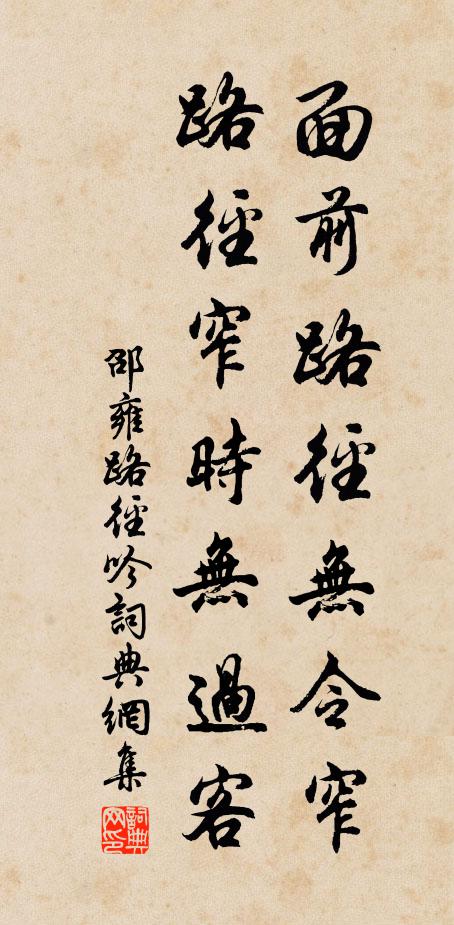 面前路徑無令窄
路徑窄時無過客
邵雍路徑吟詞典網集
詞典网印